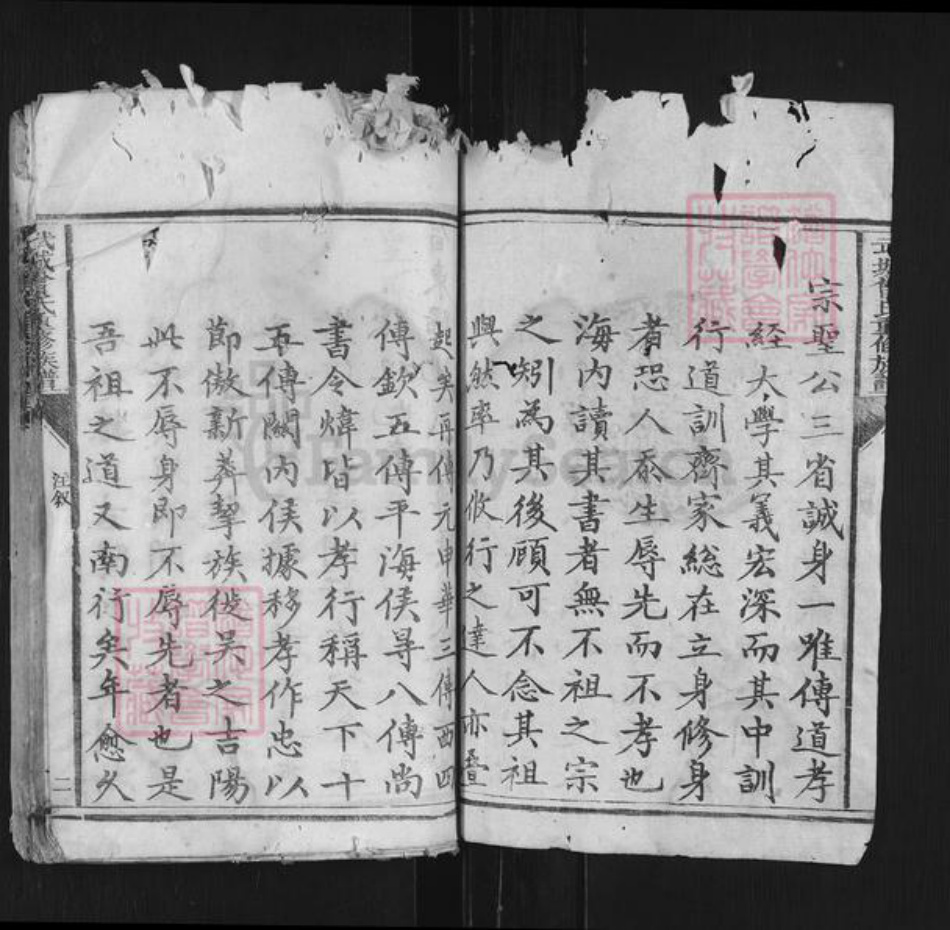 宗聖公三省誠身一唯傳道孝
經大學其義宏深而其中訓
行道訓齊家総在立身修身
者恐人忝生辱先而不孝也
海内讀其書者無不祖之宗
之矧為其後顧可不念其祖
興然率乃攸行之達人亦疊
起矣再傳元申華三傳西四
傳欽五傳平海侯尋八傳尚
書令煒皆以孝行稱天下十
五傳關内侯據移孝作忠以
節傲新莽挈族徙吴之吉陽
此不辱身即不辱先者也是
吾祖之道又南行矣年愈久
武城曾氏重修族譜
汪叙
二
FamilySearch